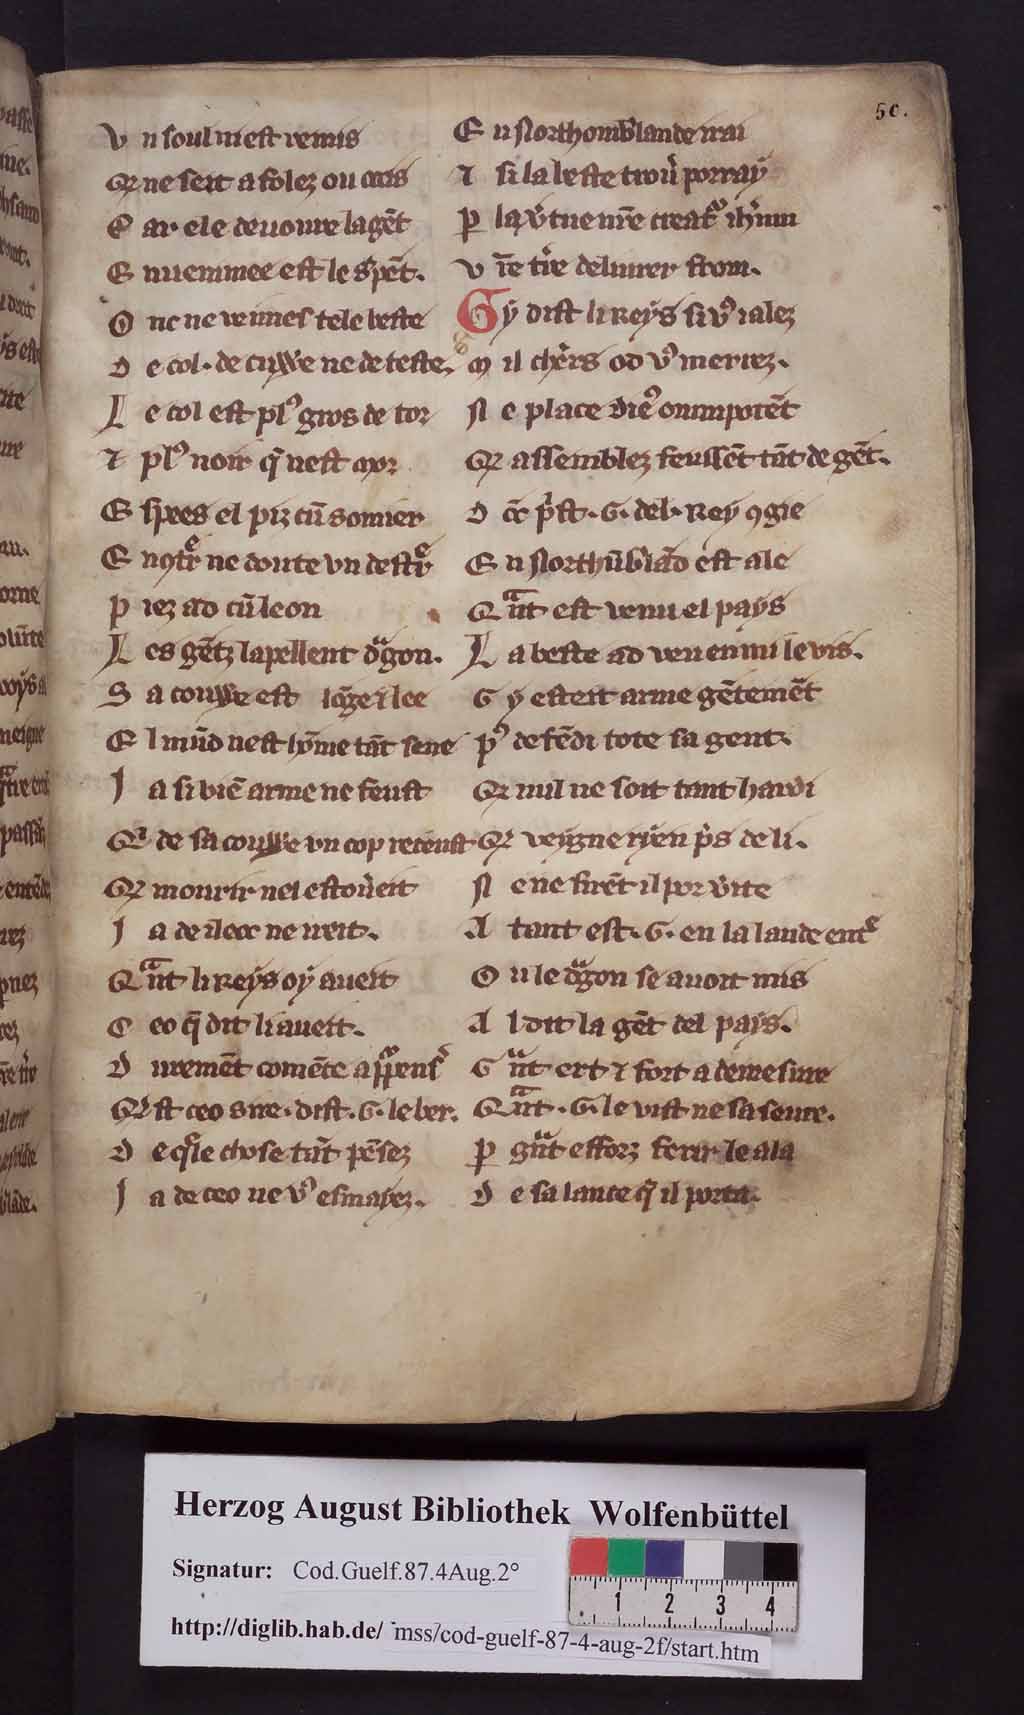 50.
V n soul ni est remis
Q̄ ne seit afolez ou ocis
C ar ele deuoure la gēt
E nuenimee est le s̄pēt.
O nc ne veimes tele beste
D e col. de cuwe ne de teste.
L e col est pl9 gros de tor
⁊ pl9 noir q̄ nest mor
E spes el piz cū somier
P iez ad cū leon
L es gētz lapellent dᵃgon.
S a couwe est lōge ⁊ lee
E l mūd nest hōme tāt sene
J a si biē arme ne feust
Qⁱ de sa couwe vn cop receust
Q̄ mourir nel estou̾eit
J a de ileoc ne ireit.
Qᵃnt li Reys oy aueit
C eo q̄ dit li aueit.
D urement comēce a
Q̄ st ceo sire. dist. G. le ber.
D e qͤle chose tāt pēsez
J a de ceo ne v9 esmayez.
E n Northomb̄lande irrai
⁊ si la beste trou̾ porray
P̄ la v̾tue nr̄e creatᵒ ih̄um
V r̄e t̾re deliurer from.
Gy dist li Reys si v9 i alez
M il ch̾rs od v9 meriez.
N e place dieu omnipotēt
Q̄ assemblez feussēt tāt de gēt.
D oc p̾st. G. del. Rey ꝯgie
E n Northūb̄lād est ale
Qᵃnt est venu el pays
L a beste ad veu enmi le vis.
G y esteit arme gētemēt
P9 defēdi tote sa gent.
Q̄ nul ne soit tant hardi
Q̄ veygne ryen p̾s de li.
N e ne firēt il por v̾ite
A tant est. G. en la lande entͤ
O u le dᵃgon se auoit mis
A l dit la gēt del pays.
Gᵃnt ert ⁊ fort a demesure
Qᵃnt. G. le vist ne sa seure.
P̄ gᵃnt efforz ferir le ala
D e sa lance q̄ il porta.
Herzog August Bibliothek Wolfenbüttel
Signatur: Cod.Guelf.87.4Aug.2°
http://diglib.hab.de/ mss/cod-guelf-87-4-aug-2f/start.htm
1 2 3 4